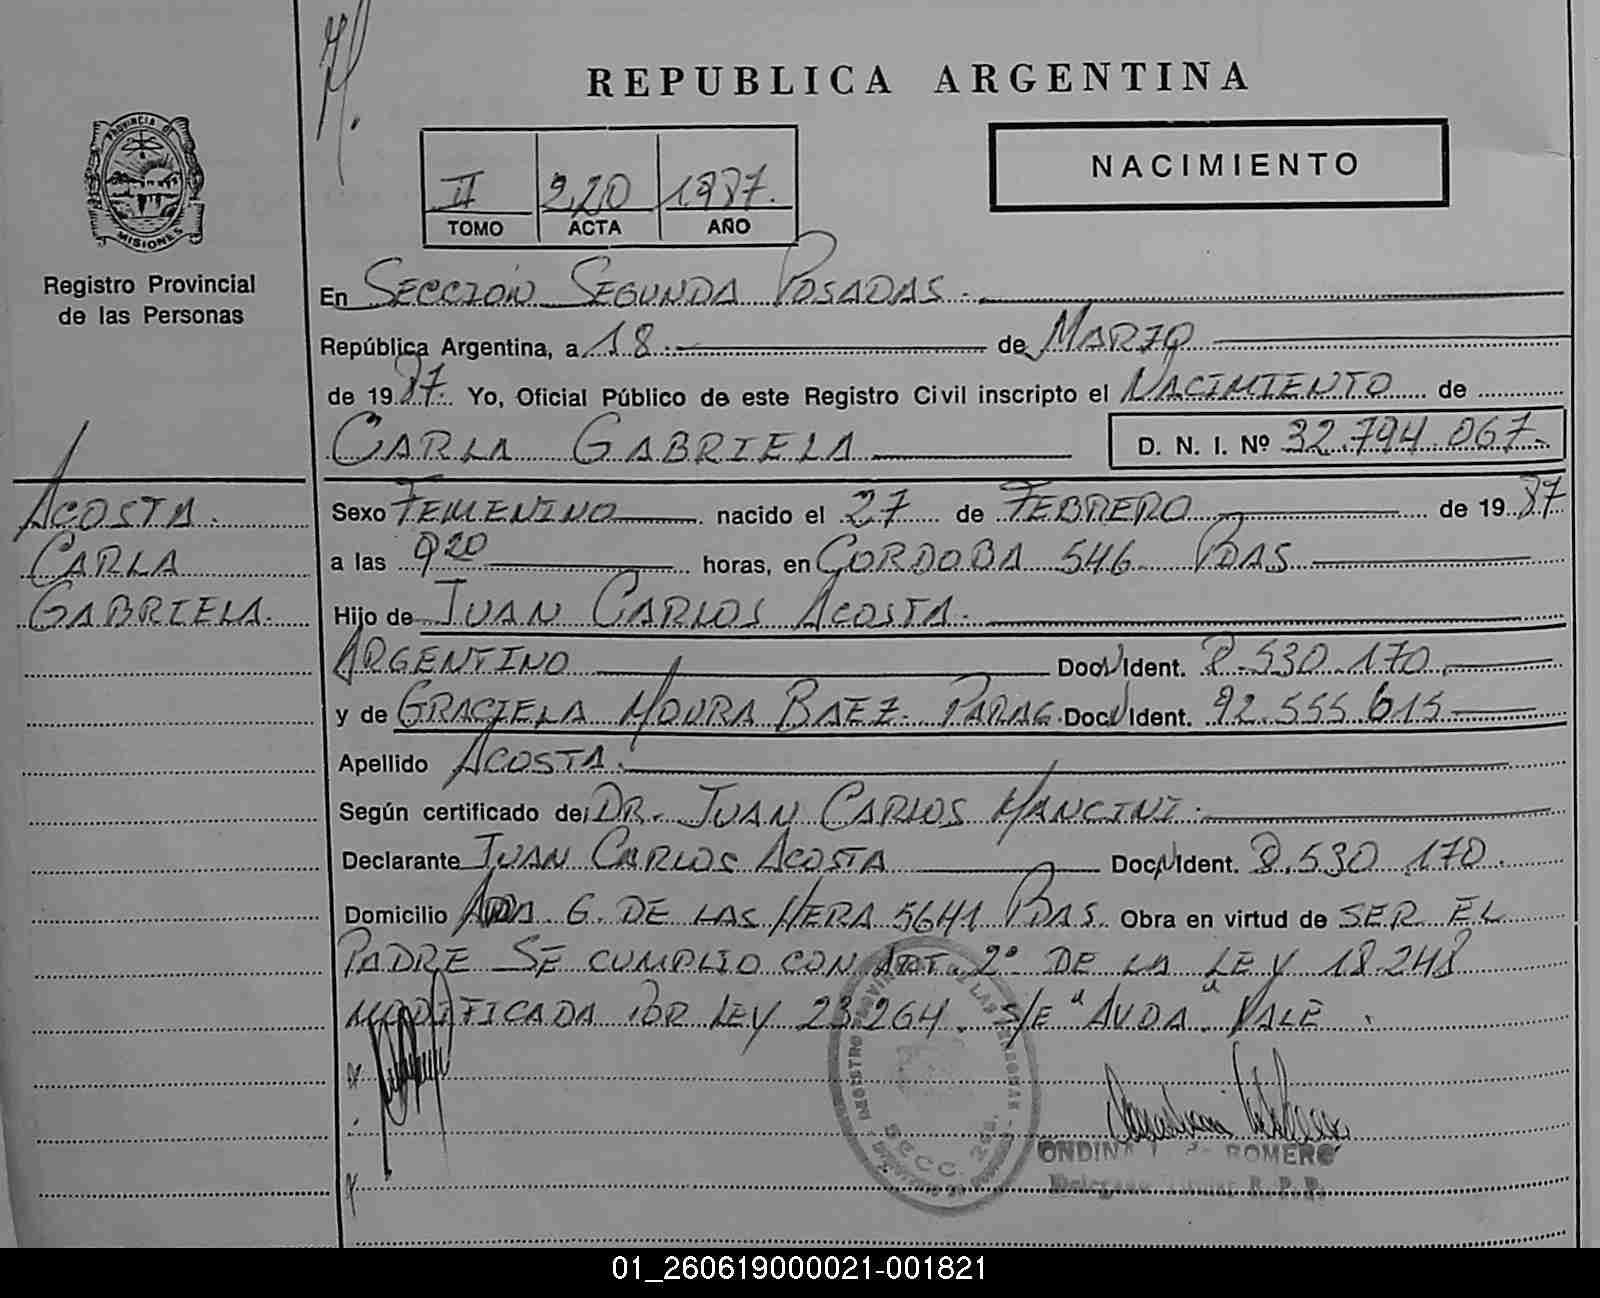 REPUBLICA ARGENTINA
PROVINCIA DE
MISIONES
Registro Provincial
de las Personas
II 220 1987.
TOMO ACTA AÑO
NACIMIENTO
En SECCIÓN SEGUNDA POSADAS.
República Argentina, a 18 de MARZO
de 1987. Yo, Oficial Público de este Registro Civil inscripto el NACIMIENTO de
CARLA GABRIELA D. N. I. Nº 32.794.067.
ACOSTA.
CARLA
GABRIELA.
Sexo FEMENINO nacido el 27 de FEBRERO de 1987
a las 9 20 horas, en CORDOBA 546 PDAS.
Hijo de JUAN CARLOS ACOSTA.
ARGENTINO Doc. Ident. 8.530.170.
y de GRACIELA MOURA BAEZ. PARAG. Doc. Ident. 92.555.615
Apellido ACOSTA.
Según certificado de DR. JUAN CARLOS MANCINI.
Declarante JUAN CARLOS ACOSTA Doc. Ident. 8.530.170.
Domicilio G. DE LAS HERA 5641 PDAS. Obra en virtud de SER EL
PADRE SE CUMPLIO CON ART. 2º DE LA LEY 18.248
MODIFICADA POR LEY 23.264. S/E "AVDA" VALE.
SECC. 2da.
ROMERO
01_260619000021-001821